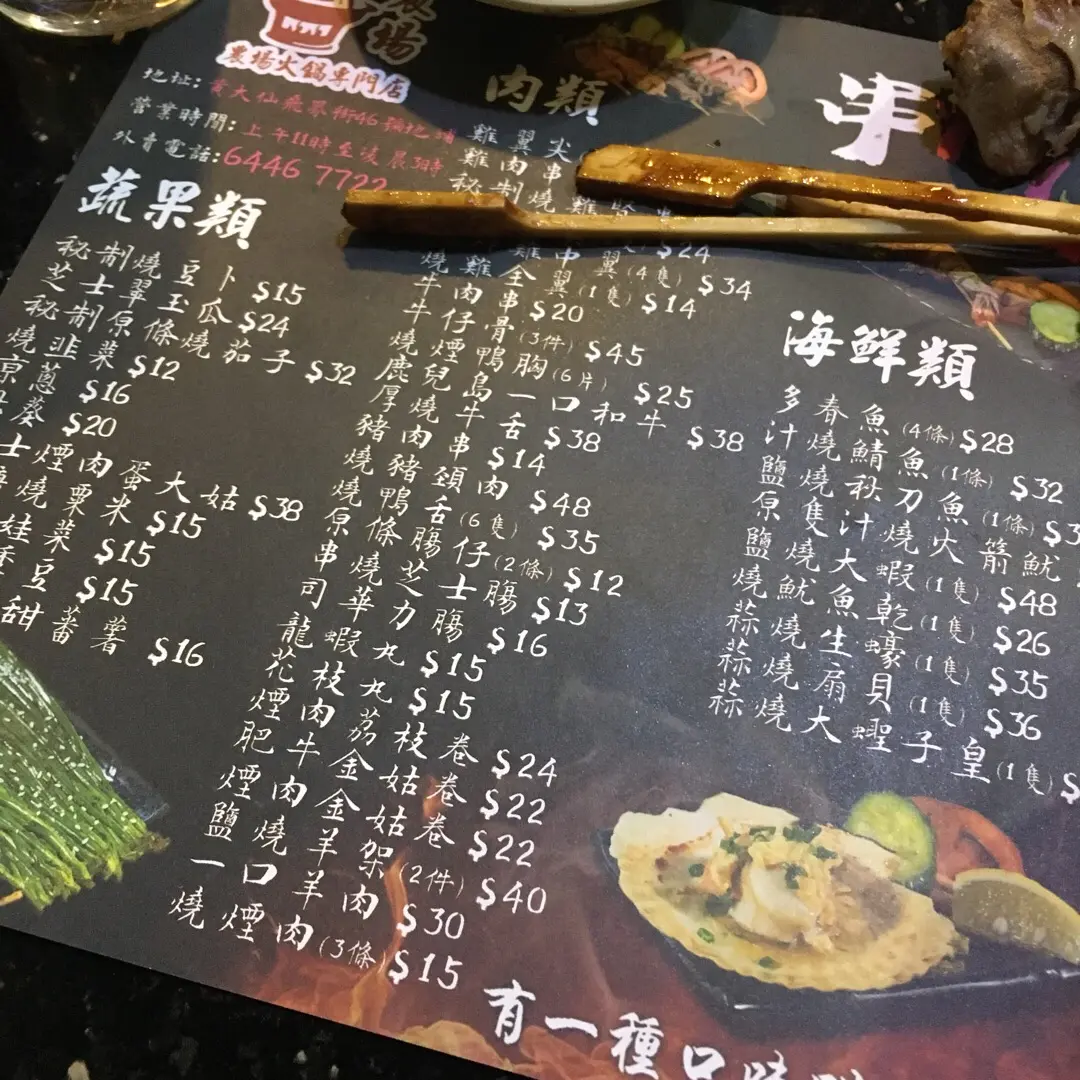 農場火鍋專門店
地址:黃大仙飛鳳街46號地鋪
營業時間:上午11時至凌晨3時
外賣電話:6446 7722
蔬果類
秘制燒豆卜 $15
芝士翠玉瓜 $24
秘制原條燒茄子 $32
燒韭菜 $12
京蔥 $16
葵 $20
士煙肉蛋大姑 $38
燒粟米 $15
娃菜 $15
豆 $15
甜蕃薯 $16
肉類
雞翼尖
雞肉串
秘制燒雞腎串
$24
燒雞中翼(4隻) $34
雞全翼(1隻) $14
牛肉串 $20
牛仔骨(3件) $45
燒煙鴨胸(6片) $25
鹿兒島一口和牛 $38
厚燒牛舌 $38
豬肉串 $14
燒豬頸肉 $48
燒鴨舌(6隻) $35
原條腸仔(2條) $12
串燒芝士腸 $13
司華力腸 $16
龍蝦丸 $15
花枝丸 $15
煙肉荔枝卷 $24
肥牛金姑卷 $22
煙肉金姑卷 $22
鹽燒羊架(2件) $40
一口羊肉 $30
燒煙肉(3條) $15
串
海鮮類
多春魚(4條) $28
汁燒鯖魚(1條) $32
鹽燒秋刀魚(1條) $3
原隻汁燒火箭魷
鹽燒大蝦(1隻) $48
燒魷魚乾(1隻) $26
蒜燒生蠔(1隻) $35
蒜燒扇貝(1隻) $36
蒜燒大蟶子皇(1隻) $
有一種口味